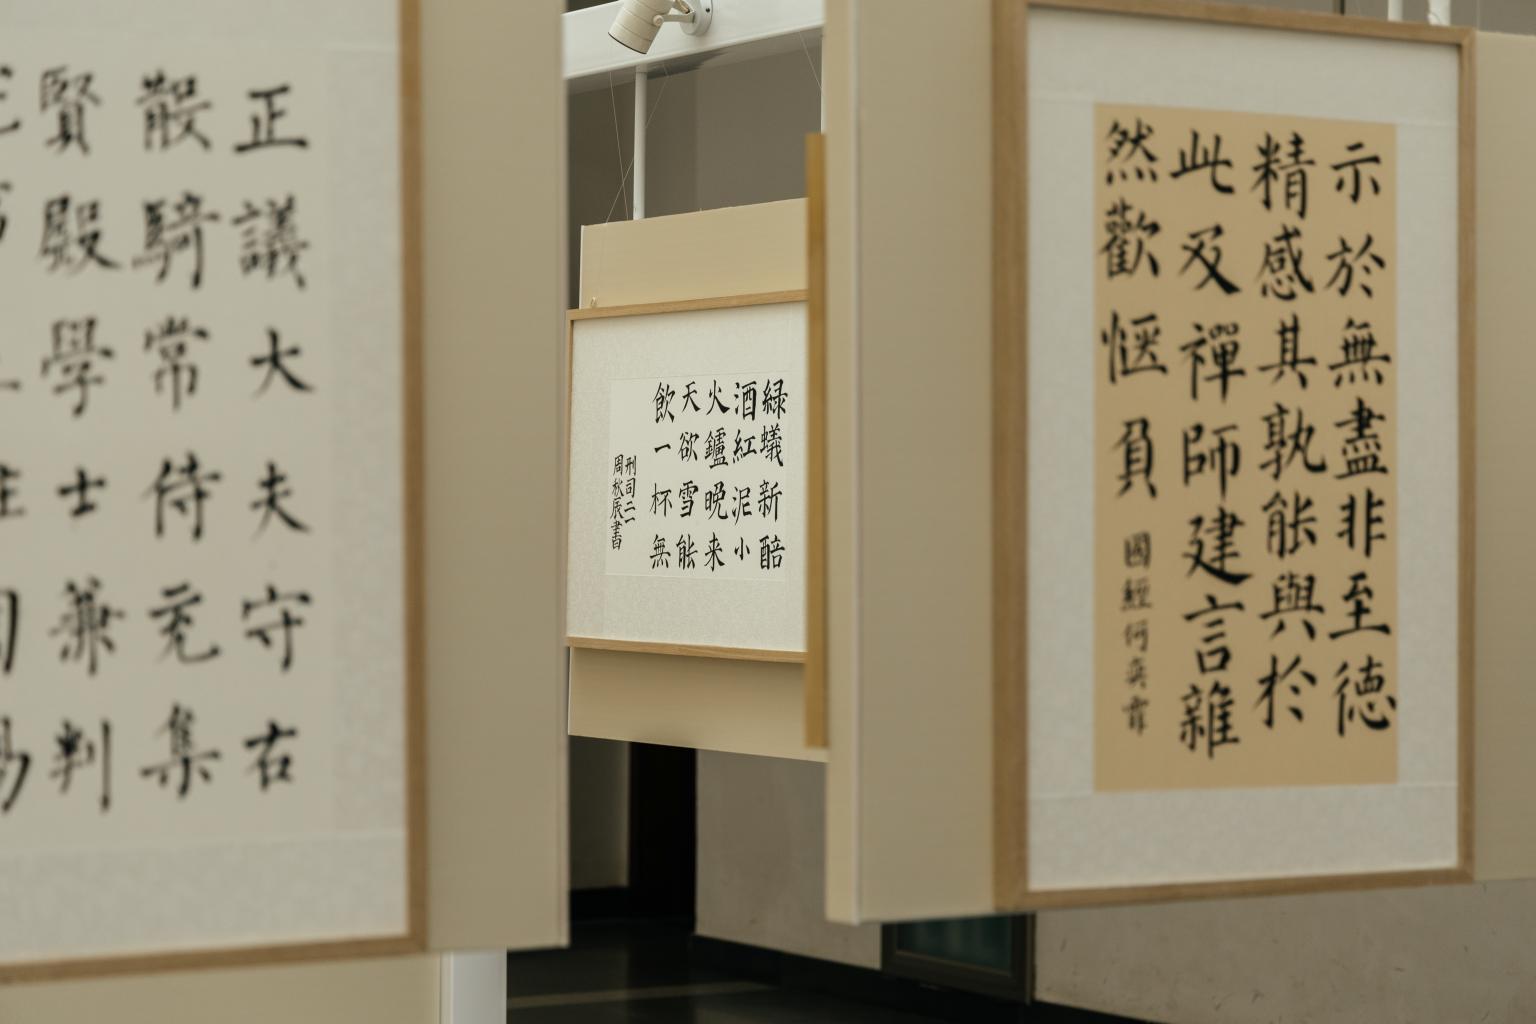 正議大夫守右
散騎常侍充集
賢殿學士兼判
緑蟻新醅
酒紅泥小
火鑪晚来
天欲雪能
飲一杯無
刑司二一
周秋辰書
示於無盡非至德
精感其孰能與於
此及禪師建言雜
然歡愜負
國經何奕霏